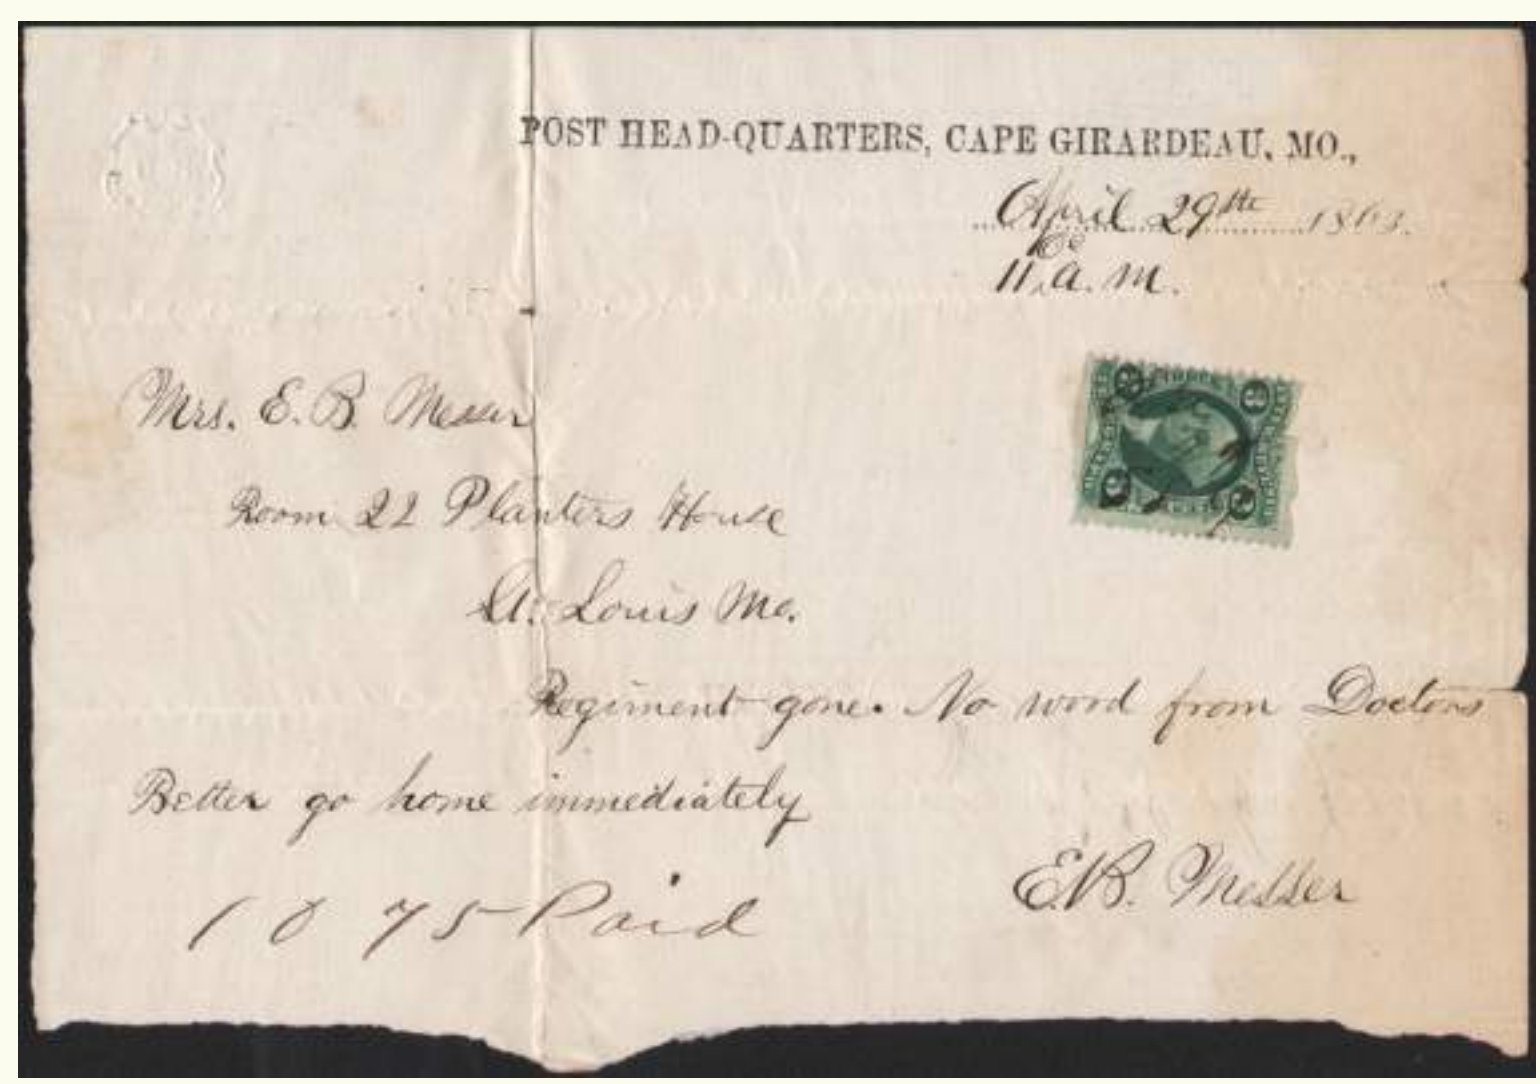 POST HEAD-QUARTERS, CAPE GIRARDEAU, MO.,
April 29th 1863.
11 a. m.
3 3
Mrs. E. B. Messer
Room 22 Planters House
St. Louis Mo.
Regiment gone. No word from Doctors
Better go home immediately
E. B. Messer
10 75 Paid